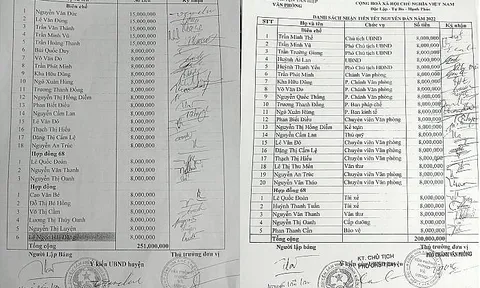 Nguyễn Văn Đúc 15,000,000
Lê Văn Dũng 15,000,000
Trần Văn Thành 15,000,000
Trần Minh Vũ 15,000,000
Trần Hoàng Thanh 15,000,000
Bùi Quốc Duy 8,000,000
Võ Văn Do 8,000,000
8 Trần Phúc Minh 8,000,000
9 Kha Hữu Dũng 8,000,000
10 Ngô Xuân Hùng 8,000,000
11 Trương Thành Đông 8,000,000
12 Nguyễn Thị Hồng Diễm 8,000,000
13 Phan Biết Điều 8,000,000
14 Nguyễn Cẩm Lan 8,000,000
15 Lê Văn Đô 8,000,000
16 Thạch Thị Hiền 8,000,000
17 Đặng Thị Cẩm Lệ 8,000,000
18 Nguyễn An Trúc 8,000,000
Hợp đồng 68
1 Lê Quốc Đoàn 8,000,000
2 Nguyễn Văn Thanh 8,000,000
3 Nguyễn Thị Oanh 8,000,000
Hợp đồng
1 Cao Văn Bé 8,000,000
2 Đỗ Thị Bé Hồng 8,000,000
3 Võ Thị Cẩm 8,000,000
4 Lương Thị Thúy Oanh 8,000,000
5 Nguyễn Thị Luyện 8,000,000
6 8,000,000
Tổng cộng 251,000,000
Người Lập Bảng Thủ trưởng đơn vị
Ý kiến UBND huyện
VĂN PHÒNG
CỘNG HOÀ XÃ HỘI CHỦ NGHĨA VIỆT NAM
Độc Lập - Tự Do - Hạnh Phúc
DANH SÁCH NHẬN TIỀN TẾT NGUYÊN ĐÁN NĂM 2022
STT Họ và tên Chức vụ Số tiền Ký nhận
Biên chế
1 Trần Minh Thế Chủ tịch UBND 8,000,000
2 Trần Minh Vũ Phó Chủ tịch UBND 8,000,000
3 Trần Trường Giang Phó Chủ tịch UBND 8,000,000
4 Huỳnh Ai Lan UBND 8,000,000
5 Huỳnh Thanh Yêu Phó Chủ tịch UBND 8,000,000
6 Trần Phúc Minh Chánh Văn phòng 8,000,000
7 Kha Hữu Dũng P. Chánh Văn phòng 8,000,000
8 Võ Văn Do P. Chánh Văn phòng 8,000,000
9 Nguyễn Quốc Thắng P. Chánh Văn phòng 8,000,000
10 Trương Thành Đông P. Ban pháp chế 8,000,000
11 Ngô Xuân Hùng P. Ban kinh tế 8,000,000
12 Phan Biết Điều Chuyên viên Văn phòng 8,000,000
13 Nguyễn Thị Hồng Diễm Kế toán 8,000,000
14 Nguyễn Cẩm Lan Thủ quỹ 8,000,000
15 Lê Văn Đô Chuyên viên Văn phòng 8,000,000
16 Đặng Thị Cẩm Lệ Chuyên viên Văn phòng 8,000,000
17 Thạch Thị Hiền Chuyên viên Văn phòng 8,000,000
18 Lê Thị Thu Mến Văn thư 8,000,000
19 Nguyễn An Trúc Chuyên viên Văn phòng 8,000,000
20 Nguyễn Văn Thảo Chuyên viên Văn phòng 8,000,000
Hợp đồng 68
1 Lê Quốc Đoàn Tài xế 8,000,000
2 Huỳnh Thanh Tuấn Tài xế 8,000,000
3 Nguyễn Văn Thanh Văn thư 8,000,000
4 Nguyễn Thị Oanh Cấp dưỡng 8,000,000
5 Phan Thanh Cần Bảo vệ 8,000,000
Tổng cộng 200,000,000
Người lập bảng Thủ trưởng đơn vị
KT. CHỦ TỊCH
PHÓ CHÁNH VĂN PHÒNG
Ý kiến UBND huyện